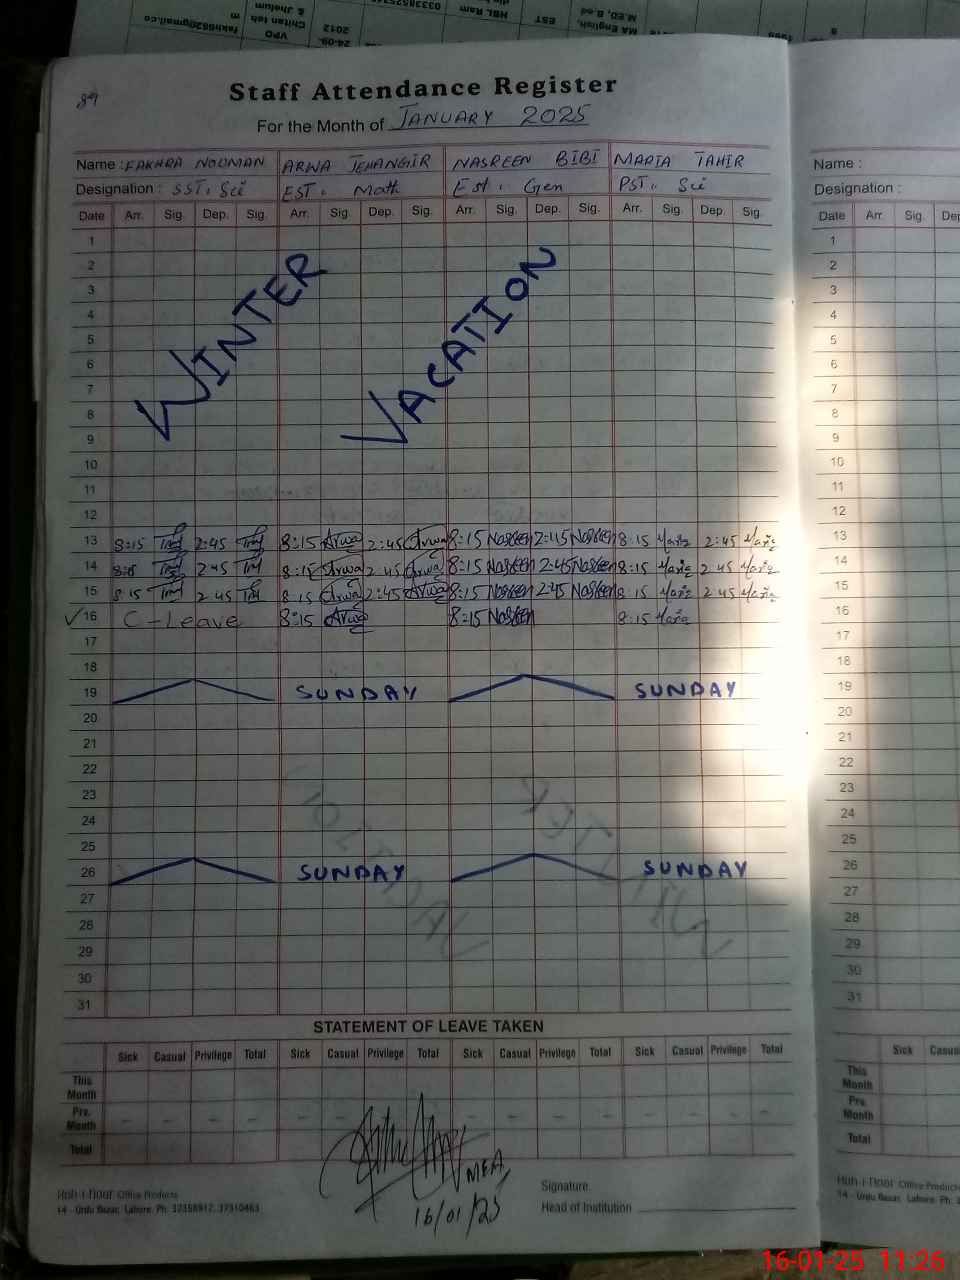 MA English, M.ED, B.ed
HBL Ram
EST
VPO Chitan teh & Jhelum
2012
fakh6820@gmail.com
89
Staff Attendance Register
For the Month of JANUARY 2025
Name : FAKHRA NOUMAN ARWA JEHANGIR NASREEN BIBI MARIA TAHIR Name :
Designation : SST. Sci EST. Math Est. Gen PST. Sci Designation :
Date Arr. Sig. Dep. Sig. Arr. Sig. Dep. Sig. Arr. Sig. Dep. Sig. Arr. Sig. Dep. Sig. Date Arr. Sig. Dep
1 1
2 2
3 3
4 4
5 5
6 6
7 7
8 8
9 9
WINTER VACATION
10 10
11 11
12 12
13 8:15 2:45 8:15 Arwa 2:45 Arwa 8:15 Nasreen 2:45 Nasreen 8:15 Maria 2:45 Maria 13
14 8:15 2:45 8:15 Arwa 2:45 Arwa 8:15 Nasreen 2:45 Nasreen 8:15 Maria 2:45 Maria 14
15 8:15 2:45 8:15 Arwa 2:45 Arwa 8:15 Nasreen 2:45 Nasreen 8:15 Maria 2:45 Maria 15
✓16 C-Leave 8:15 Arwa 8:15 Nasreen 8:15 Maria 16
17 17
18 18
19 SUNDAY SUNDAY 19
20 20
21 21
22 22
23 23
24 24
25 25
26 SUNDAY SUNDAY 26
27 27
28 28
29 29
30 30
31 31
STATEMENT OF LEAVE TAKEN
Sick Casual Privilege Total Sick Casual Privilege Total Sick Casual Privilege Total Sick Casual Privilege Total Sick Casu
This Month This Month
Pre. Month – – – – – – – – – – – Pre. Month
Total Total
MEA,
16/01/25
Signature
Head of Institution
Office Products
14 - Urdu Bazar, Lahore. Ph. 37358917, 37310463
Office Product
14 - Urdu Bazar, Lahore. Ph.
16-01-25 11:26